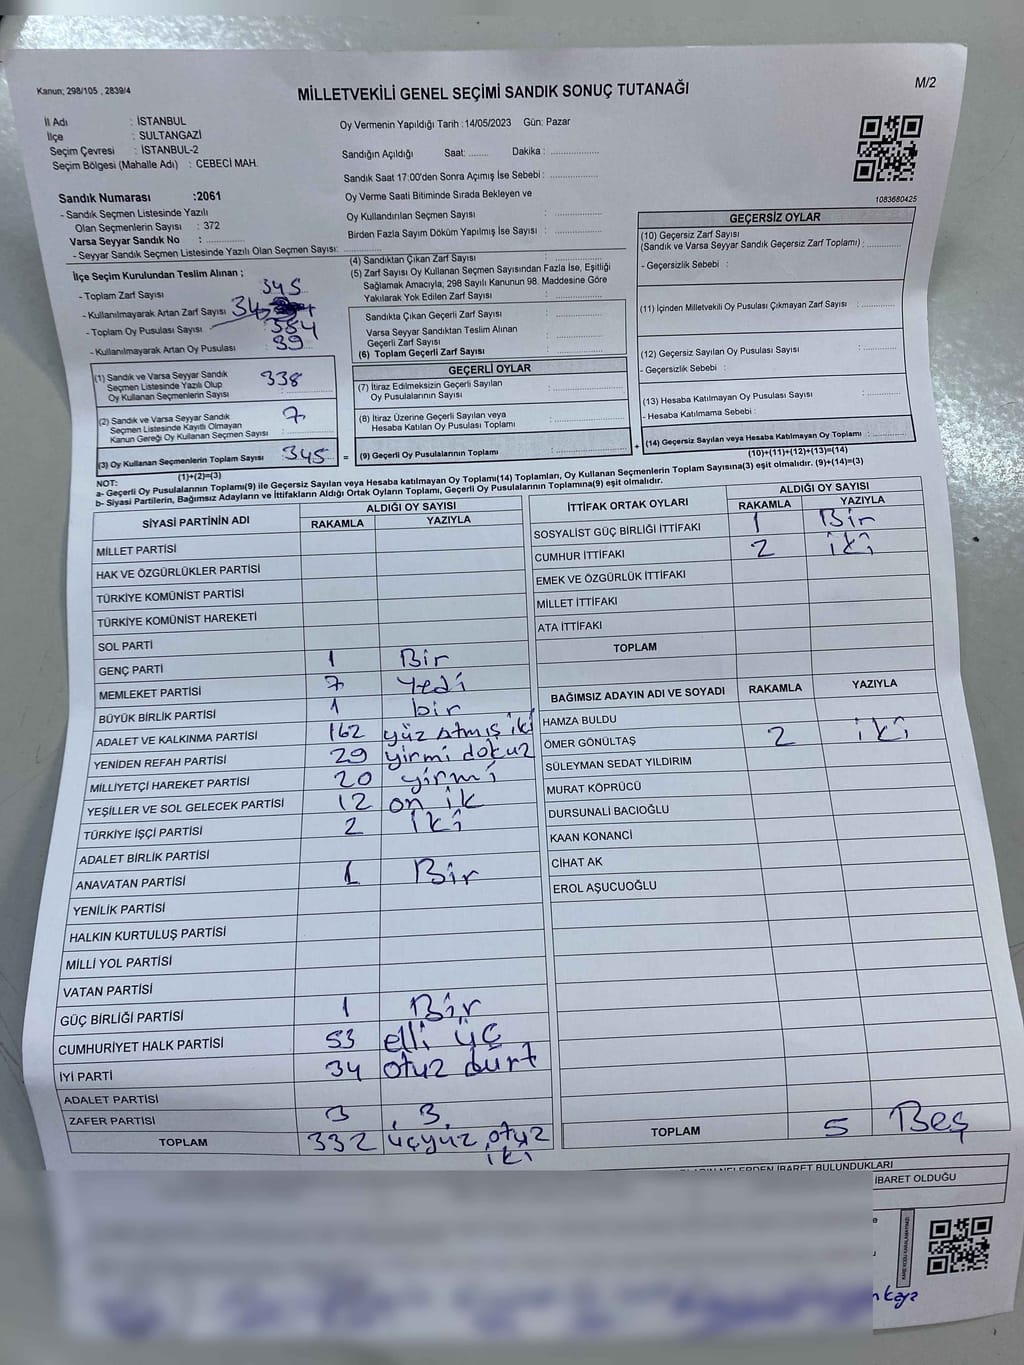 Kanun; 298/105 , 2839/4
MİLLETVEKİLİ GENEL SEÇİMİ SANDIK SONUÇ TUTANAĞI
M/2
İl Adı : İSTANBUL
İlçe : SULTANGAZİ
Seçim Çevresi : İSTANBUL-2
Seçim Bölgesi (Mahalle Adı) : CEBECİ MAH.
Sandık Numarası :2061
- Sandık Seçmen Listesinde Yazılı
Olan Seçmenlerin Sayısı : 372
Varsa Seyyar Sandık No :
- Seyyar Sandık Seçmen Listesinde Yazılı Olan Seçmen Sayısı:
Oy Vermenin Yapıldığı Tarih :14/05/2023 Gün: Pazar
Sandığın Açıldığı Saat: Dakika :
Sandık Saat 17:00'den Sonra Açımış İse Sebebi :
Oy Verme Saati Bitiminde Sırada Bekleyen ve
Oy Kullandırılan Seçmen Sayısı :
Birden Fazla Sayım Döküm Yapılmış İse Sayısı :
1083680425
İlçe Seçim Kurulundan Teslim Alınan ;
- Toplam Zarf Sayısı 345
- Kullanılmayarak Artan Zarf Sayısı
- Toplam Oy Pusulası Sayısı 384
- Kullanılmayarak Artan Oy Pusulası 39
(1) Sandık ve Varsa Seyyar Sandık
Seçmen Listesinde Yazılı Olup
Oy Kullanan Seçmenlerin Sayısı 338
(2) Sandık ve Varsa Seyyar Sandık
Seçmen Listesinde Kayıtlı Olmayan
Kanun Gereği Oy Kullanan Seçmen Sayısı 7
(3) Oy Kullanan Seçmenlerin Toplam Sayısı 345
(1)+(2)=(3)
(4) Sandıktan Çıkan Zarf Sayısı :
(5) Zarf Sayısı Oy Kullanan Seçmen Sayısından Fazla İse, Eşitliği
Sağlamak Amacıyla; 298 Sayılı Kanunun 98. Maddesine Göre
Yakılarak Yok Edilen Zarf Sayısı :
Sandıkta Çıkan Geçerli Zarf Sayısı :
Varsa Seyyar Sandıktan Teslim Alınan
Geçerli Zarf Sayısı :
(6) Toplam Geçerli Zarf Sayısı :
GEÇERLİ OYLAR
(7) İtiraz Edilmeksizin Geçerli Sayılan
Oy Pusulalarının Sayısı :
(8) İtiraz Üzerine Geçerli Sayılan veya
Hesaba Katılan Oy Pusulası Toplamı :
= (9) Geçerli Oy Pusulalarının Toplamı :
GEÇERSİZ OYLAR
(10) Geçersiz Zarf Sayısı
(Sandık ve Varsa Seyyar Sandık Geçersiz Zarf Toplamı) :
- Geçersizlik Sebebi :
(11) İçinden Milletvekili Oy Pusulası Çıkmayan Zarf Sayısı :
(12) Geçersiz Sayılan Oy Pusulası Sayısı :
- Geçersizlik Sebebi :
(13) Hesaba Katılmayan Oy Pusulası Sayısı :
- Hesaba Katılmama Sebebi :
+ (14) Geçersiz Sayılan veya Hesaba Katılmayan Oy Toplamı :
(10)+(11)+(12)+(13)=(14)
NOT:
a- Geçerli Oy Pusulalarının Toplamı(9) ile Geçersiz Sayılan veya Hesaba katılmayan Oy Toplamı(14) Toplamları, Oy Kullanan Seçmenlerin Toplam Sayısına(3) eşit olmalıdır. (9)+(14)=(3)
b- Siyasi Partilerin, Bağımsız Adayların ve İttifakların Aldığı Ortak Oyların Toplamı, Geçerli Oy Pusulalarının Toplamına(9) eşit olmalıdır.
SİYASİ PARTİNİN ADI ALDIĞI OY SAYISI
RAKAMLA YAZIYLA
MİLLET PARTİSİ
HAK VE ÖZGÜRLÜKLER PARTİSİ
TÜRKİYE KOMÜNİST PARTİSİ
TÜRKİYE KOMÜNİST HAREKETİ
SOL PARTİ
GENÇ PARTİ 1 Bir
MEMLEKET PARTİSİ 7 Yedi
BÜYÜK BİRLİK PARTİSİ 1 bir
ADALET VE KALKINMA PARTİSİ 162 yüz atmış iki
YENİDEN REFAH PARTİSİ 29 yirmi dokuz
MİLLİYETÇİ HAREKET PARTİSİ 20 yirmi
YEŞİLLER VE SOL GELECEK PARTİSİ 12 on ik
TÜRKİYE İŞÇİ PARTİSİ 2 iki
ADALET BİRLİK PARTİSİ
ANAVATAN PARTİSİ 1 Bir
YENİLİK PARTİSİ
HALKIN KURTULUŞ PARTİSİ
MİLLİ YOL PARTİSİ
VATAN PARTİSİ
GÜÇ BİRLİĞİ PARTİSİ 1 Bir
CUMHURİYET HALK PARTİSİ 53 elli üç
İYİ PARTİ 34 otuz durt
ADALET PARTİSİ
ZAFER PARTİSİ 3 3
TOPLAM 332 üçyüz otuz
iki
İTTİFAK ORTAK OYLARI ALDIĞI OY SAYISI
RAKAMLA YAZIYLA
SOSYALİST GÜÇ BİRLİĞİ İTTİFAKI 1 Bir
CUMHUR İTTİFAKI 2 iki
EMEK VE ÖZGÜRLÜK İTTİFAKI
MİLLET İTTİFAKI
ATA İTTİFAKI
TOPLAM
BAĞIMSIZ ADAYIN ADI VE SOYADI RAKAMLA YAZIYLA
HAMZA BULDU
ÖMER GÖNÜLTAŞ 2 iki
SÜLEYMAN SEDAT YILDIRIM
MURAT KÖPRÜCÜ
DURSUNALİ BACIOĞLU
KAAN KONANCİ
CİHAT AK
EROL AŞUCUOĞLU
TOPLAM 5 Beş
NELERDEN İBARET BULUNDUKLARI
İBARET OLDUĞU